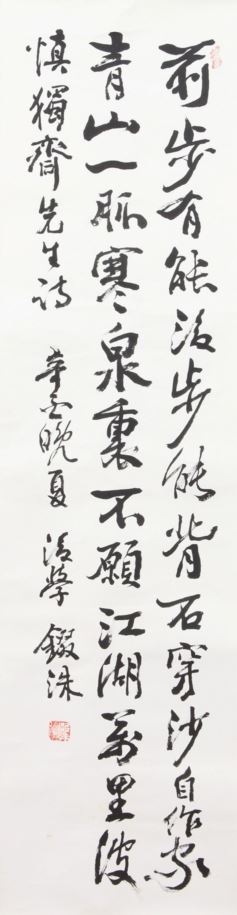 前步有能後步能背石穿沙自作家
青山一脈寒泉裏不願江湖萬里波
慎獨齊先生詩 辛酉晚夏 後學 錣洙